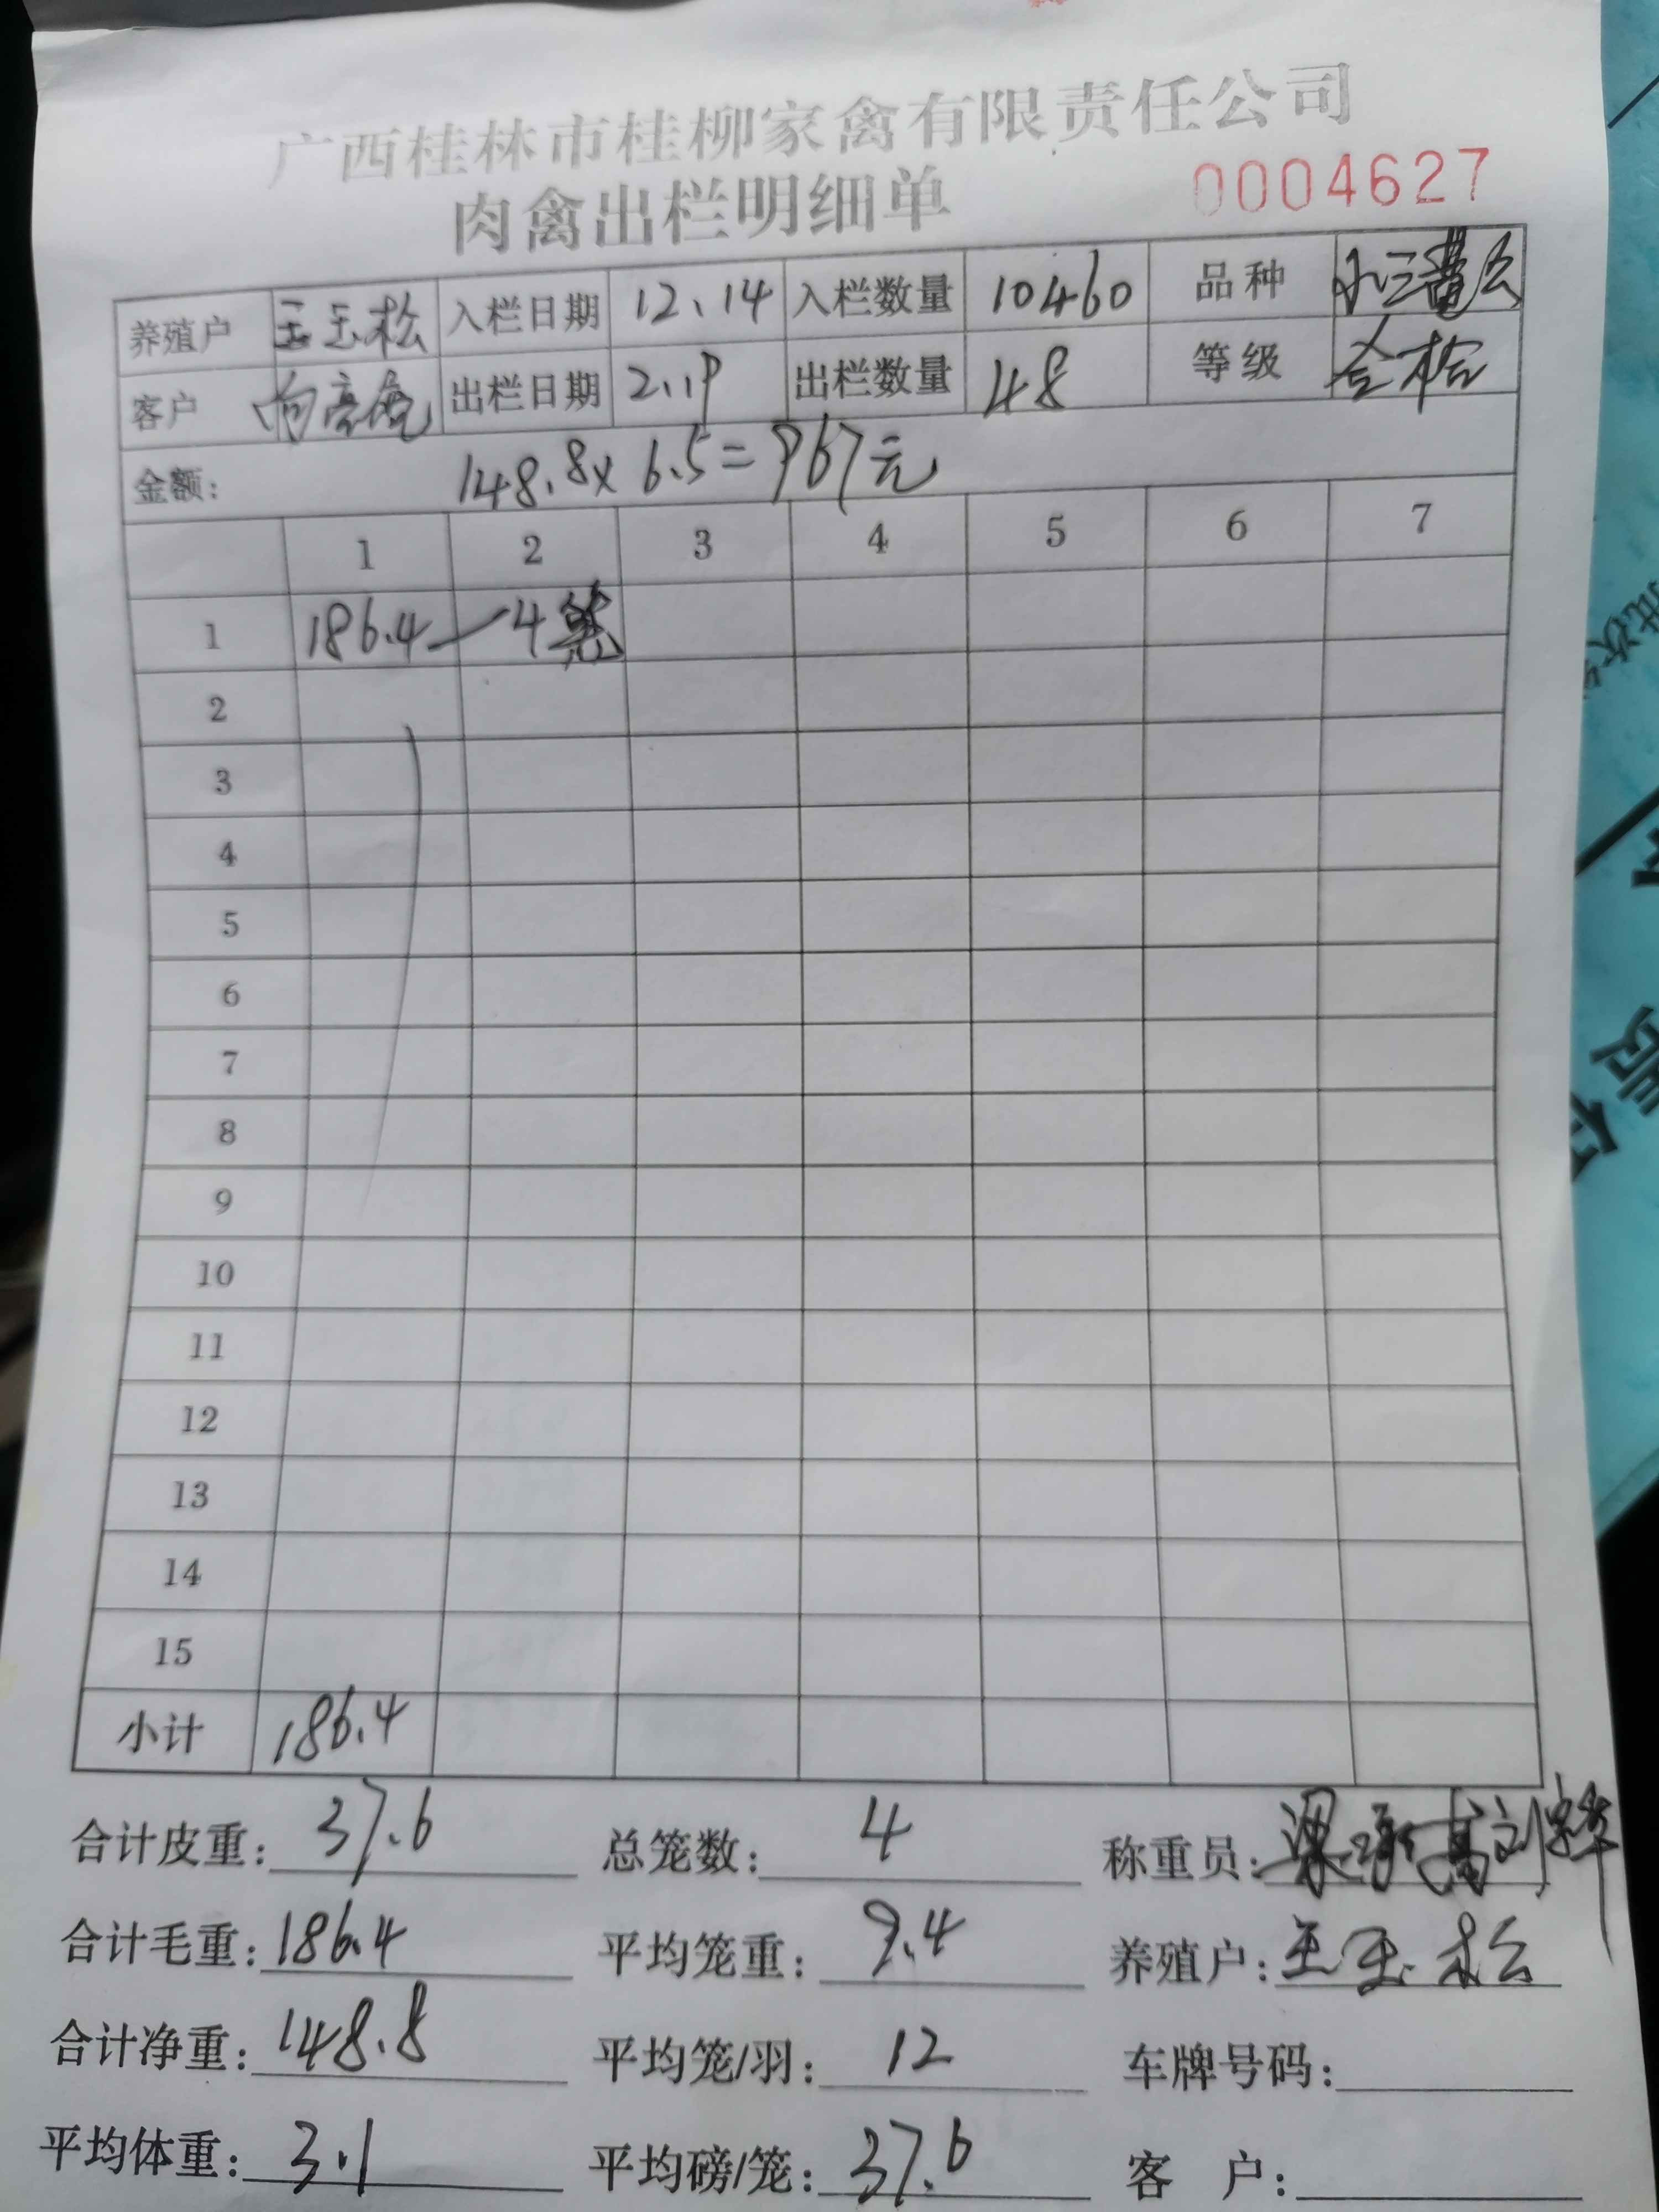 广西桂林市桂柳家禽有限责任公司
肉禽出栏明细单 0004627
养殖户 王玉松 入栏日期 12.14 入栏数量 10460 品种
客户 向亮亮 出栏日期 2.19 出栏数量 48 等级 合格
金额: 148.8x 6.5=967元
1 2 3 4 5 6 7
1 186.4—4笼
2
3
4
5
6
7
8
9
10
11
12
13
14
15
小计 186.4
合计皮重: 37.6 总笼数: 4 称重员:
合计毛重: 186.4 平均笼重: 9.4 养殖户: 王玉松
合计净重: 148.8 平均笼/羽: 12 车牌号码:
平均体重: 3.1 平均磅/笼: 37.6 客 户: